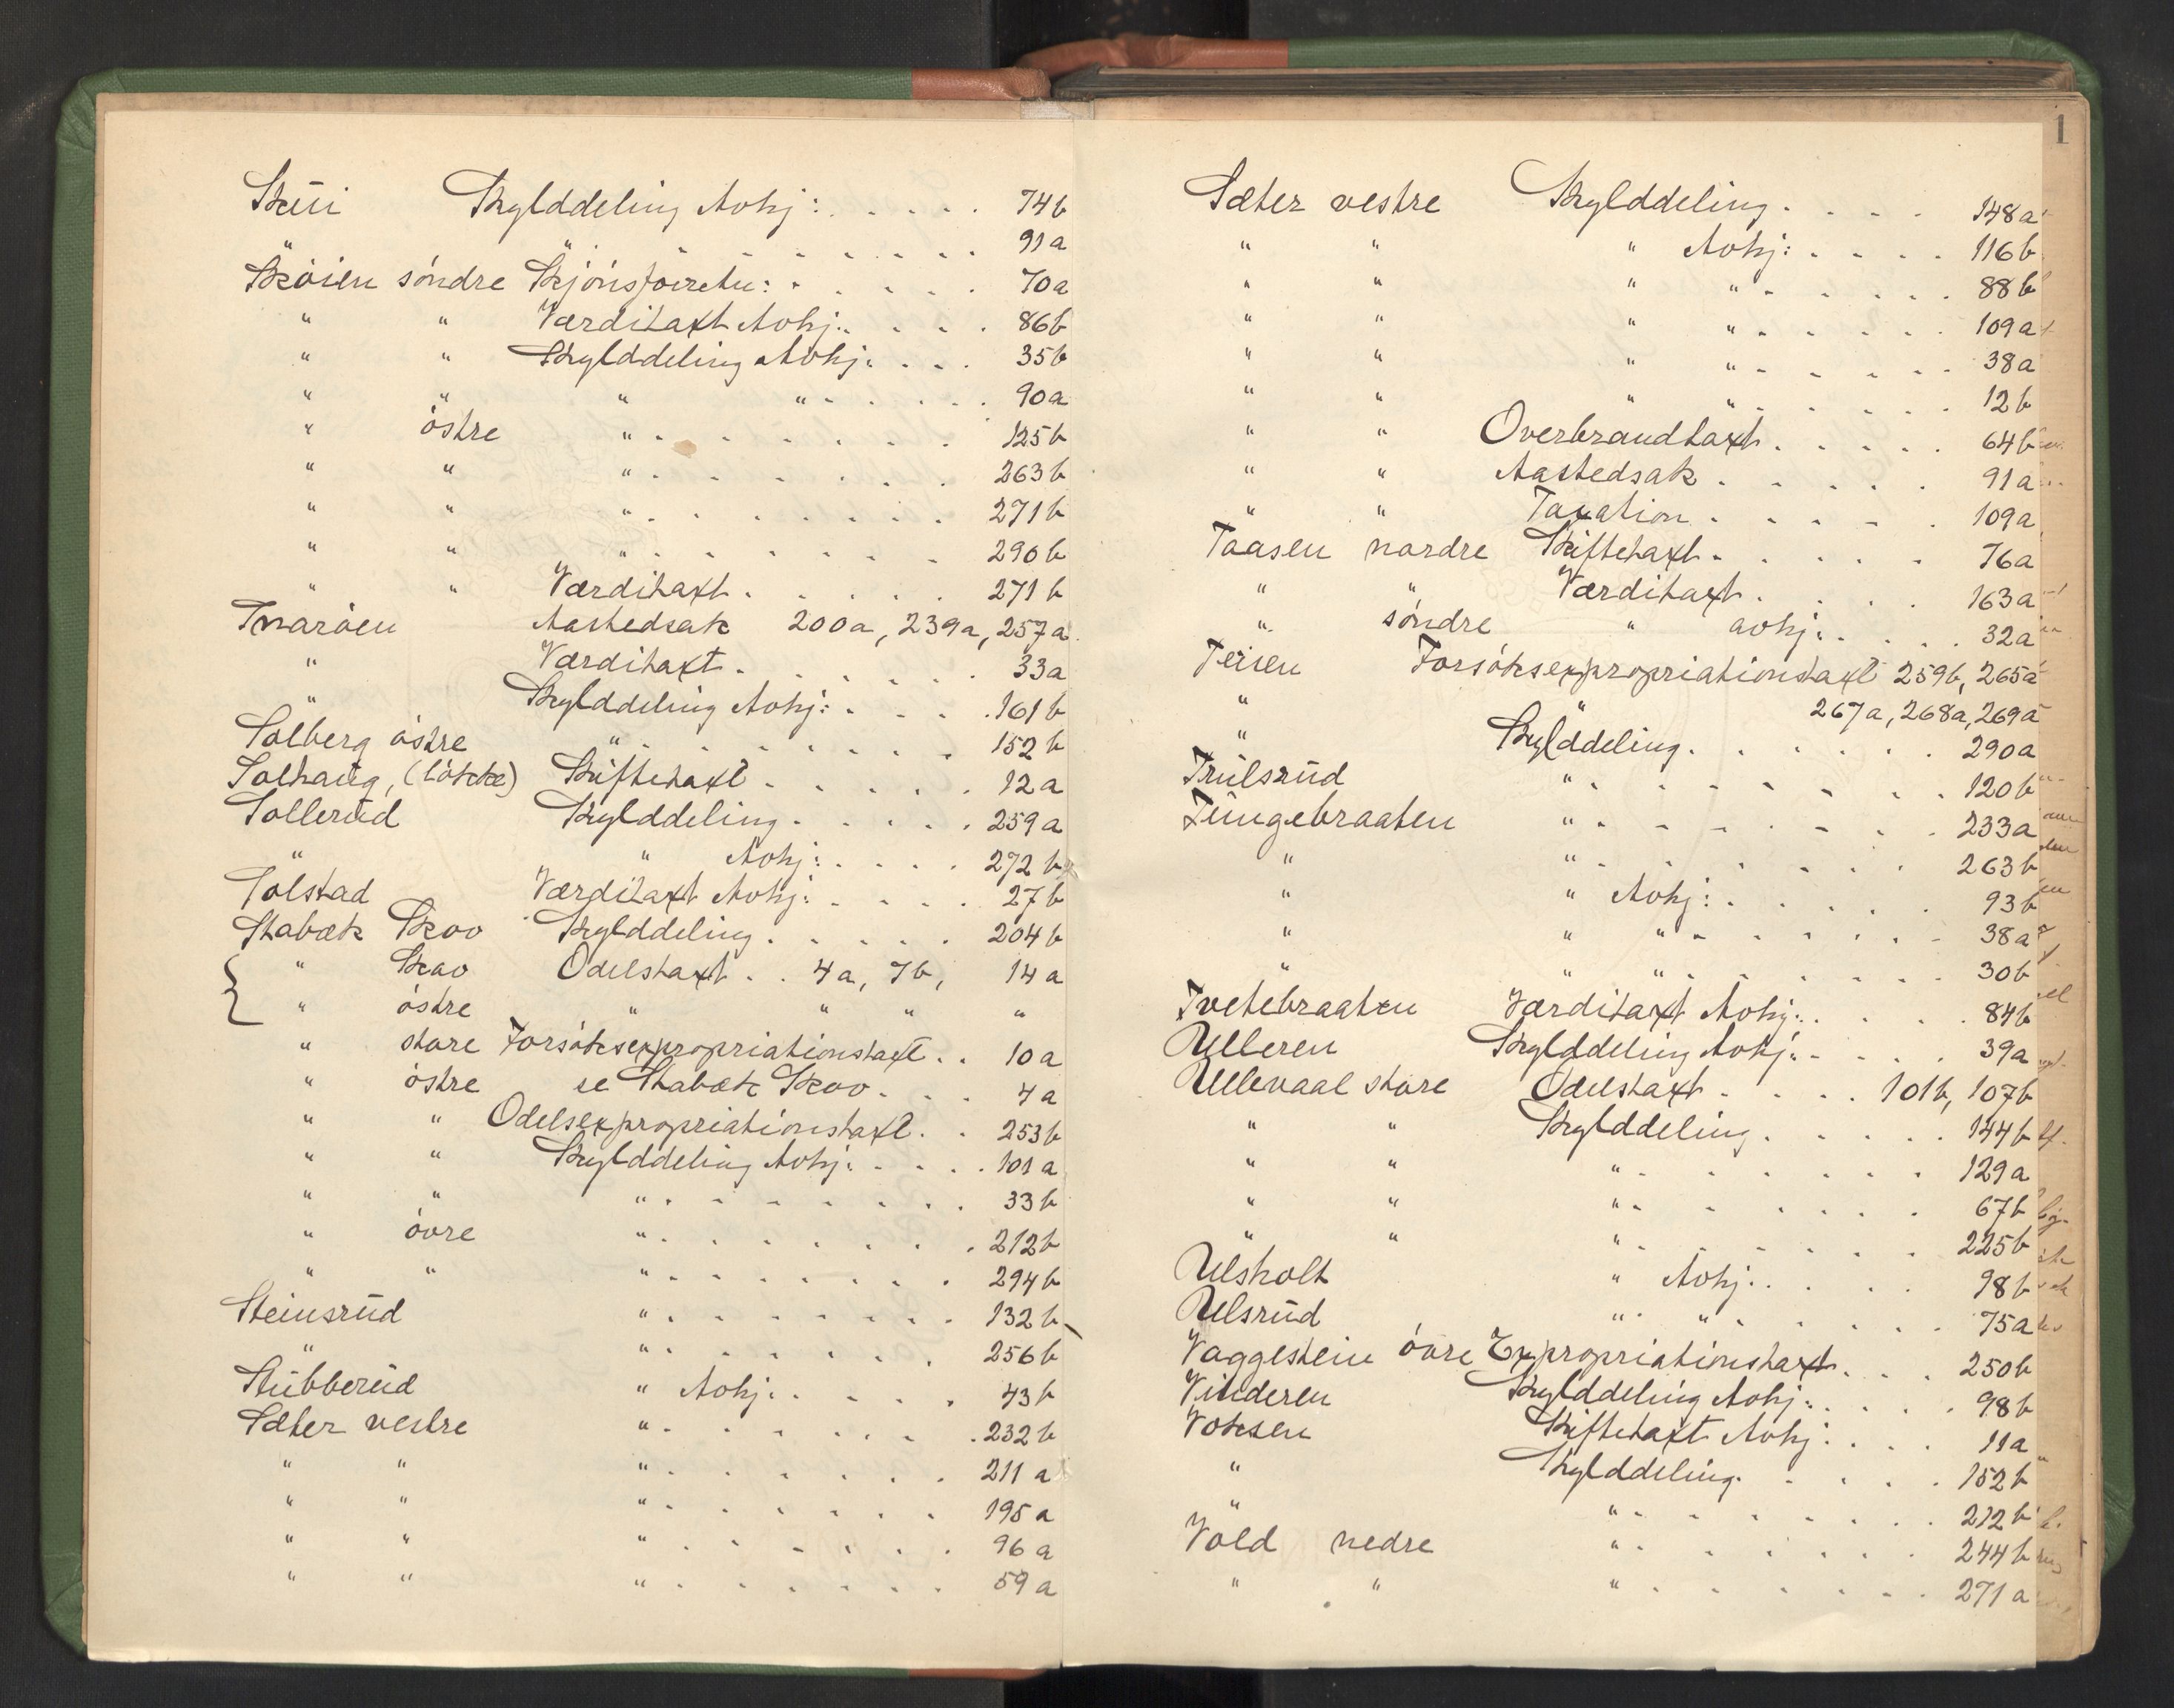 Skúi Skylddeling Avhj: . . . . . 74b
" " . . . . . . . 91a
Skóien sóndre Skjónsforretn: . . . . . 70a
" " Værditaxt Avhj: . . . 86b
" " Skylddeling Avhj: . . . 35b
" " " " . . . . . 90a
" óstre " . . . . . . . 125b
" " " . . . . . . . 263b
" " " . . . . . . . 271b
" " " . . . . . . . 290b
" " Værditaxt . . . . . 271b
Snaróen Aastedsak 200a, 239a, 257a.
" Værditaxt . . . . . . 33a
" Skylddeling Avhj: . . . . 161b
Solberg óstre " . . . . . . . . 152b
Solhaúg, (lókke) Skiftetaxt . . . . . . 12a
Sollerúd Skylddeling . . . . . 259a
" " Avhj: . . . . 272b
Solstad Værditaxt Avhj: . . . . 27b
Stabæk Skov Skylddeling . . . . . 204b
{ " Skov Odelstaxt . . 4a, 7b, 14a
" óstre " " " "
" store Forsóksexpropriationstaxt . . 10a
" óstre se Stabæk Skov . . . 4a
" " Odelsexpropriationstaxt . . 253b
" " Skylddeling Avhj: . . . . 101a
" " " . . . . . . . 33b
" óvre " . . . . . . . 212b
" " " . . . . . . . 294b
Steinsrúd " . . . . . . . 132b
" " . . . . . . . 256b
Stúbberúd " Avhj: . . . . . 43b
Sæter vestre " . . . . . . . 232b
" " " . . . . . . . 211a
" " " . . . . . . . 195a
" " " . . . . . . . 96a
" " " . . . . . . . 59a
1
Sæter vestre Skylddeling . . . . 148a
" " " Avhj: . . . . 116b
" " " " . . . . . . 88b
" " " " . . . . . . 109a
" " " " . . . . . . 38a
" " " " . . . . . . 12b
" " Overbrandtaxt . . . . . 64b
" " Aastedsak . . . . . 91a
" " Taxation . . . . . 109a
Taasen nordre Skiftetaxt . . . . . 76a
" " Værditaxt . . . . 163a
" sóndre " avhj: . . . . 32a
Teisen Forsóksexpropriationstaxt 259b, 265a
" " 267a, 268a, 269a
" Skylddeling . . . . . . 290a
Trúlsrúd " . . . . . . . 120b
Túngebraaten " . . . . . . . 233a
" " . . . . . . . 263b
" " Avhj: . . . . . . 93b
" " " . . . . . . 38a
" " " . . . . . . 30b
Tvetebraaten Værditaxt Avhj: . . . . . 84b
Ulleren Skylddeling Avhj: . . . . 39a
Ullevaal store Odelstaxt . . . . 101b, 107b
" " Skylddeling . . . . . 144b
" " " . . . . . . . 129a
" " " . . . . . . . 67b
" " " . . . . . . . 225b
Ulsholt " Avhj: . . . . 98b
Ulsrúd " " . . . . . . 75a
Vaggestein óvre Expropriationstaxt . . . 250b
Vinderen Skylddeling Avhj: . . . . 98b
Voksen Skiftetaxt Avhj: . . . . 11a
" Skylddeling . . . . . 152b
" " . . . . . . . 212b
Vold nedre " . . . . . . . 244b
" " " . . . . . . . 271a